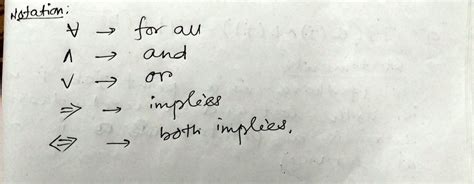 Notation:
∀ → for all
∧ → and
∨ → or
⇒ → implies
⇔ → both implies.